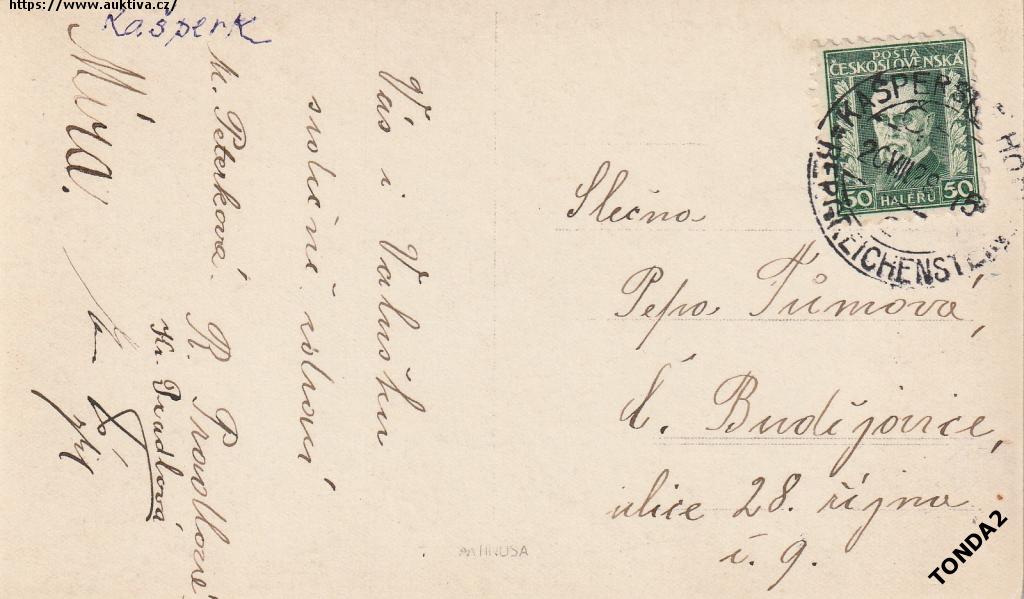 https://www.auktiva.cz/
Kašperk
Vás i Valušku
srdečně zdraví
M. Peterková.
R. Pravdlová
Kr. Pradlová
Míra.
POSTA
ČESKOSLOVENSKÁ
50 HALÉŘŮ 50
KAŠPERSKÉ HO
BERGREICHENSTEIN
20.VIII.29-15
Slečna
Pepa Tůmová,
Č. Budějovice,
ulice 28. října
č. 9.
TONDA2